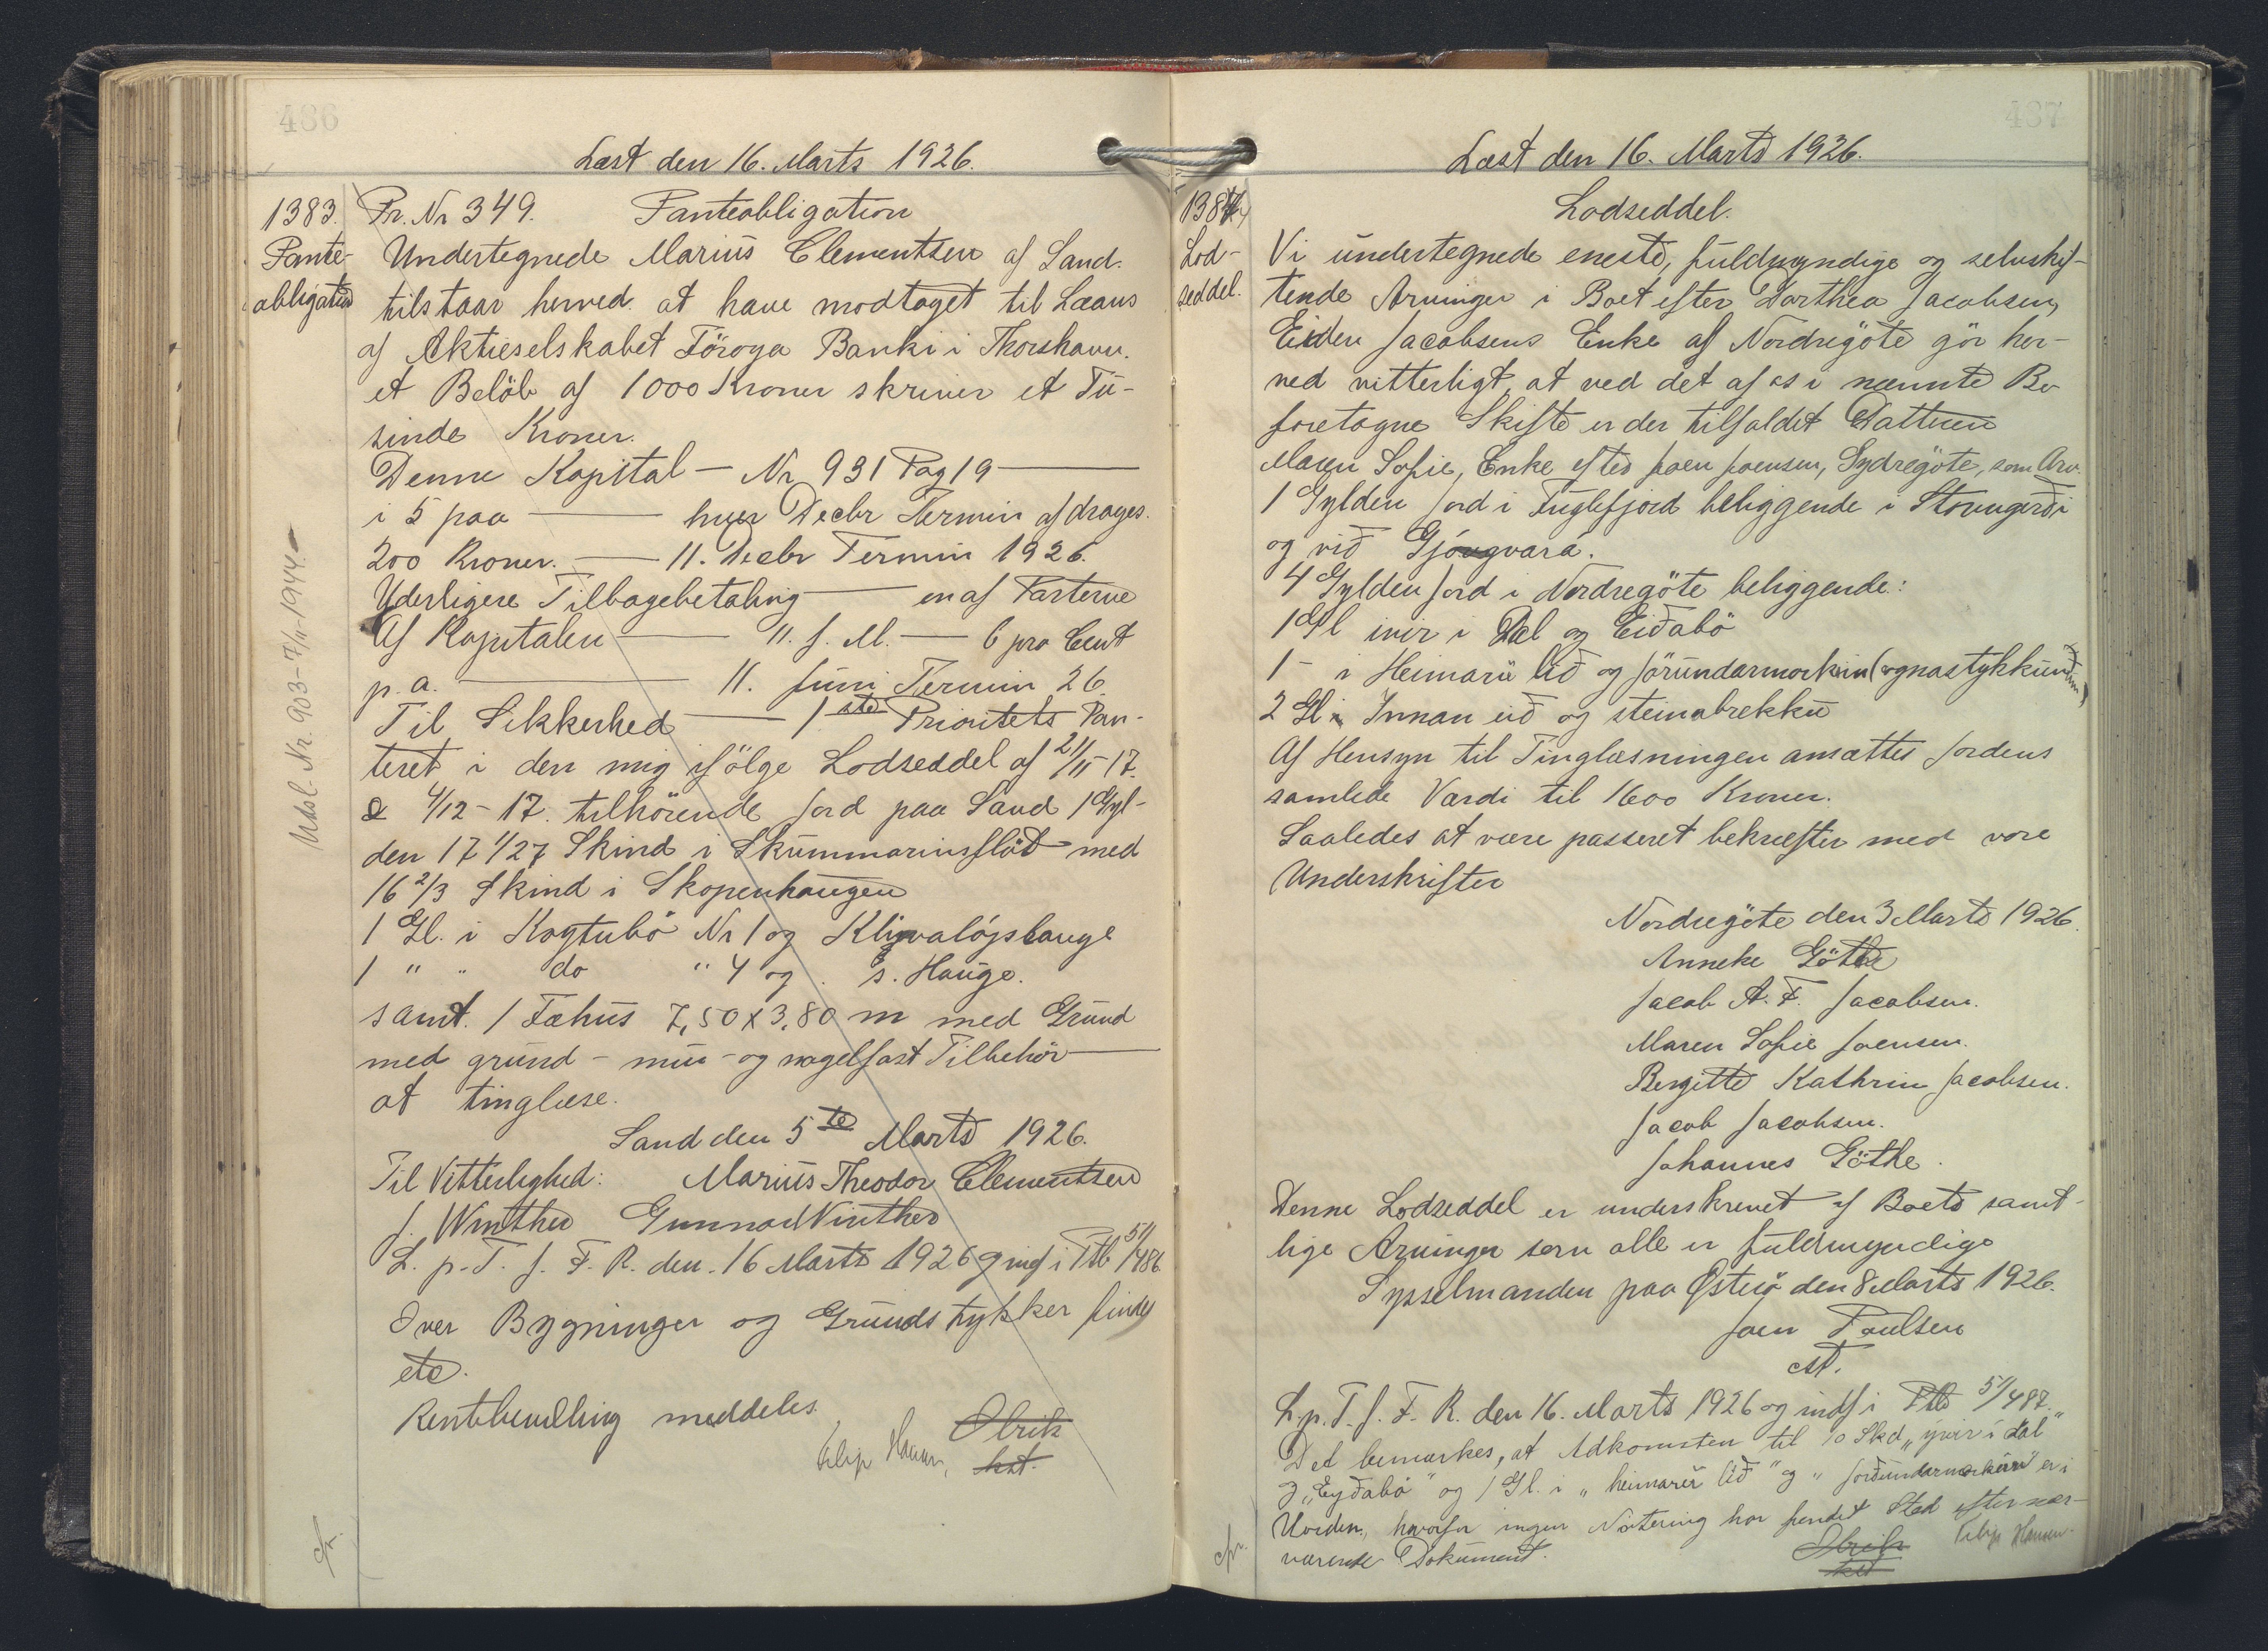 486
Læst den 16. Marts 1926.
1383.
Pante-
obligation
Udsl. Nr. 903 - 7/11-1944
Pr. Nr 349. Panteobligation
Undertegnede Marius Clementsen af Sand
tilstaar herved at have modtaget til Laans
af Aktieselskabet Föroya Banki i Thorshavn.
et Belöb af 1000 Kroner skriver et Tu-
sinde Kroner.
Denne Kapital — Nr 931 Pag 19 —
i 5 paa — hver Decbr Termin afdrages.
200 Kroner. — 11. Decbr Termin 1926.
Yderligere Tilbagebetaling — en af Parterne
Af Kapitalen — 11. f. M. — 6 pro Cent
p. a. — 11. Juni Termin 26.
Til Sikkerhed — 1ste Prioritets Pan-
teret i den mig ifölge Lodseddel af 21/11-17.
& 4/12-17. tilhörende Jord paa Sand 1 Gyl-
den 17 1/27 Skind i Skummarinsflöt med
16 2/3 Skind i Skopenhaugen
1 Gl. i Kogtubö Nr 1 og
1 " " do " 4 og s. Hauge.
samt. 1 Fæhus 7,50 x 3,80 m med Grund
med grund- mur- og nagelfast Tilbehör —
at tinglæse.
Sand den 5te Marts 1926.
Til Vitterlighed: Marius Theodor Clementsen
J. Winther Gunnar Winther
L. p. T. f. F. R. den 16 Marts 1926 og indf i Ptb 51/486.
Over Bygninger og Grundstykker findes
etc.
Rentebevilling meddeles.
Filip Hansen, Olrik
kst.
cfr.
487
Læst den 16. Marts 1926.
1384
Lod-
seddel.
Lodseddel.
Vi undertegnede eneste, fuldmyndige og selvskif-
tende Arvinger i Boet efter Darthea Jacobsen,
Eiden Jacobsens Enke af Nordregöte gör her-
ved vitterligt, at ved det af os i nævnte Bo
foretagne Skifte er der tilfaldet Datteren
Maren Sofie, Enke efter Joen Joensen, Sydregöte, som Arv.
1 Gylden Jord i Fuglefjord beliggende i Stovugerði
og við Gjógvará.
4 Gylden Jord i Nordregöte beliggende:
1 Gl ivir i Dal og Eiðabö
1 - i Heimaru lið og Jörundarmorkin (ognastykkunum)
2 Gl i Innan eið og steinabrekku
Af Hensyn til Tinglæsningen ansættes Jordens
samlede Værdi til 1600 Kroner.
Saaledes at være passeret bekræfter med vore
Underskrifter
Nordregöte den 3 Marts 1926.
Anneke Göthe
Jacob A. F. Jacobsen.
Maren Sofie Joensen.
Bergitte Kathrin Jacobsen.
Jacob Jacobsen.
Johannes Göthe.
Denne Lodseddel er underskrevet af Boets samt-
lige Arvinger som alle er fuldmyndige
Sysselmanden paa Østerö den 8 Marts 1926.
Joen Poulsen
cst.
L. p. T. f. F. R. den 16. Marts 1926 og indf i Ptb 51/487.
Det bemærkes, at Adkomsten til 10 Skd „yvir i Dal"
og „Eyðabö" og 1 Gl. i „heimaru lið" og „Jörðundarmorkini" er i
Uorden, hvorfor ingen Notering har fundet Sted efter nær-
værende Dokument.
Olrik Filip Hansen.
kst
cfr.